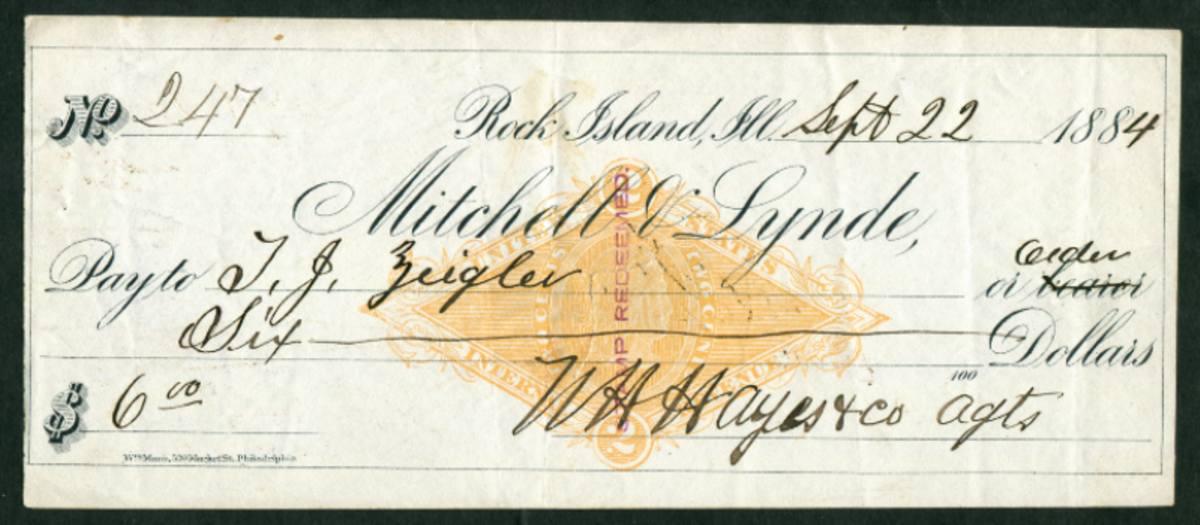 No. 247
Rock Island, Ill. Sept 22 1884
Mitchell & Lynde,
Pay to T. J. Zeigler or bearer order
Six Dollars
100
$ 6 00 W H Hayes & co agts
Wm Mann, 529 Market St. Philadelphia
UNITED STATES
INTER
2
STAMP REDEEMED.